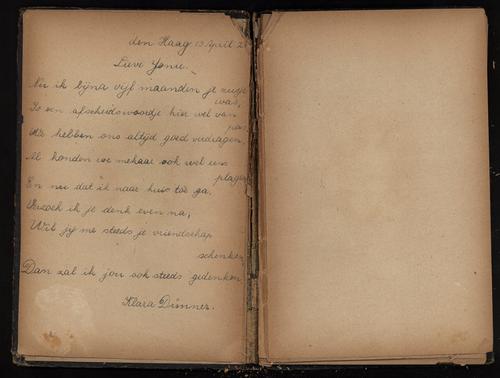 den Haag 13 April 2
Lieve Jonie.
Nu ik bijna vijf maanden je zusje
was,
Is een afscheidswoordje hier wel van
pas.
We hebben ons altijd goed verdragen,
Al konden we mekaar ook wel eens
plagen
En nu dat ik naar huis toe ga,
Verzoek ik je denk even na,
Wil jij me steeds je vriendschap
schenken
Dan zal ik jou ook steeds gedenken
Klara Dünner.